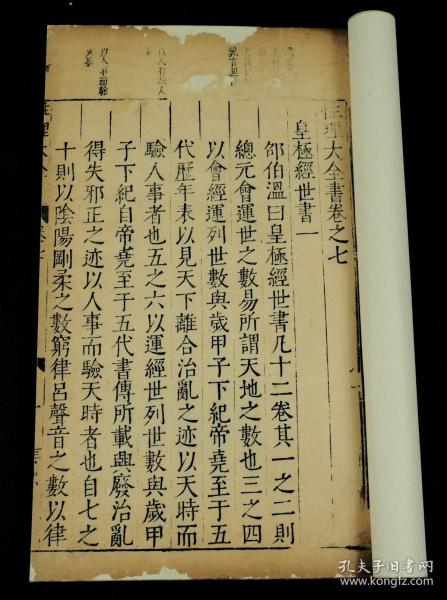 性理大全書卷之七
皇極經世書一
邵伯溫曰皇極經世書凡十二卷其一之二則
總元會運世之數易所謂天地之數也三之四
以會經運列世數與歲甲子下紀帝堯至于五
代歷年表以見天下離合治亂之迹以天時而
驗人事者也五之六以運經世列世數與歲甲
子下紀自帝堯至于五代書傳所載興廢治亂
得失邪正之迹以人事而驗天時者也自七之
十則以陰陽剛柔之數窮律呂聲音之數以律
性理大全
孔夫子旧书网
www.kongfz.com